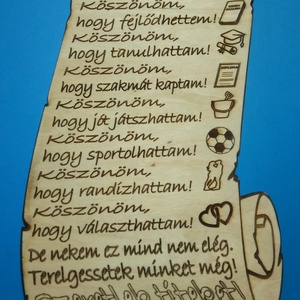 Köszönöm,
hogy fejlődhettem!
Köszönöm,
hogy tanulhattam!
Köszönöm,
hogy szakmát kaptam!
Köszönöm,
hogy jót játszhattam!
Köszönöm,
hogy sportolhattam!
Köszönöm,
hogy randizhattam!
Köszönöm,
hogy választhattam!
De nekem ez mind nem elég.
Terelgessetek minket még!